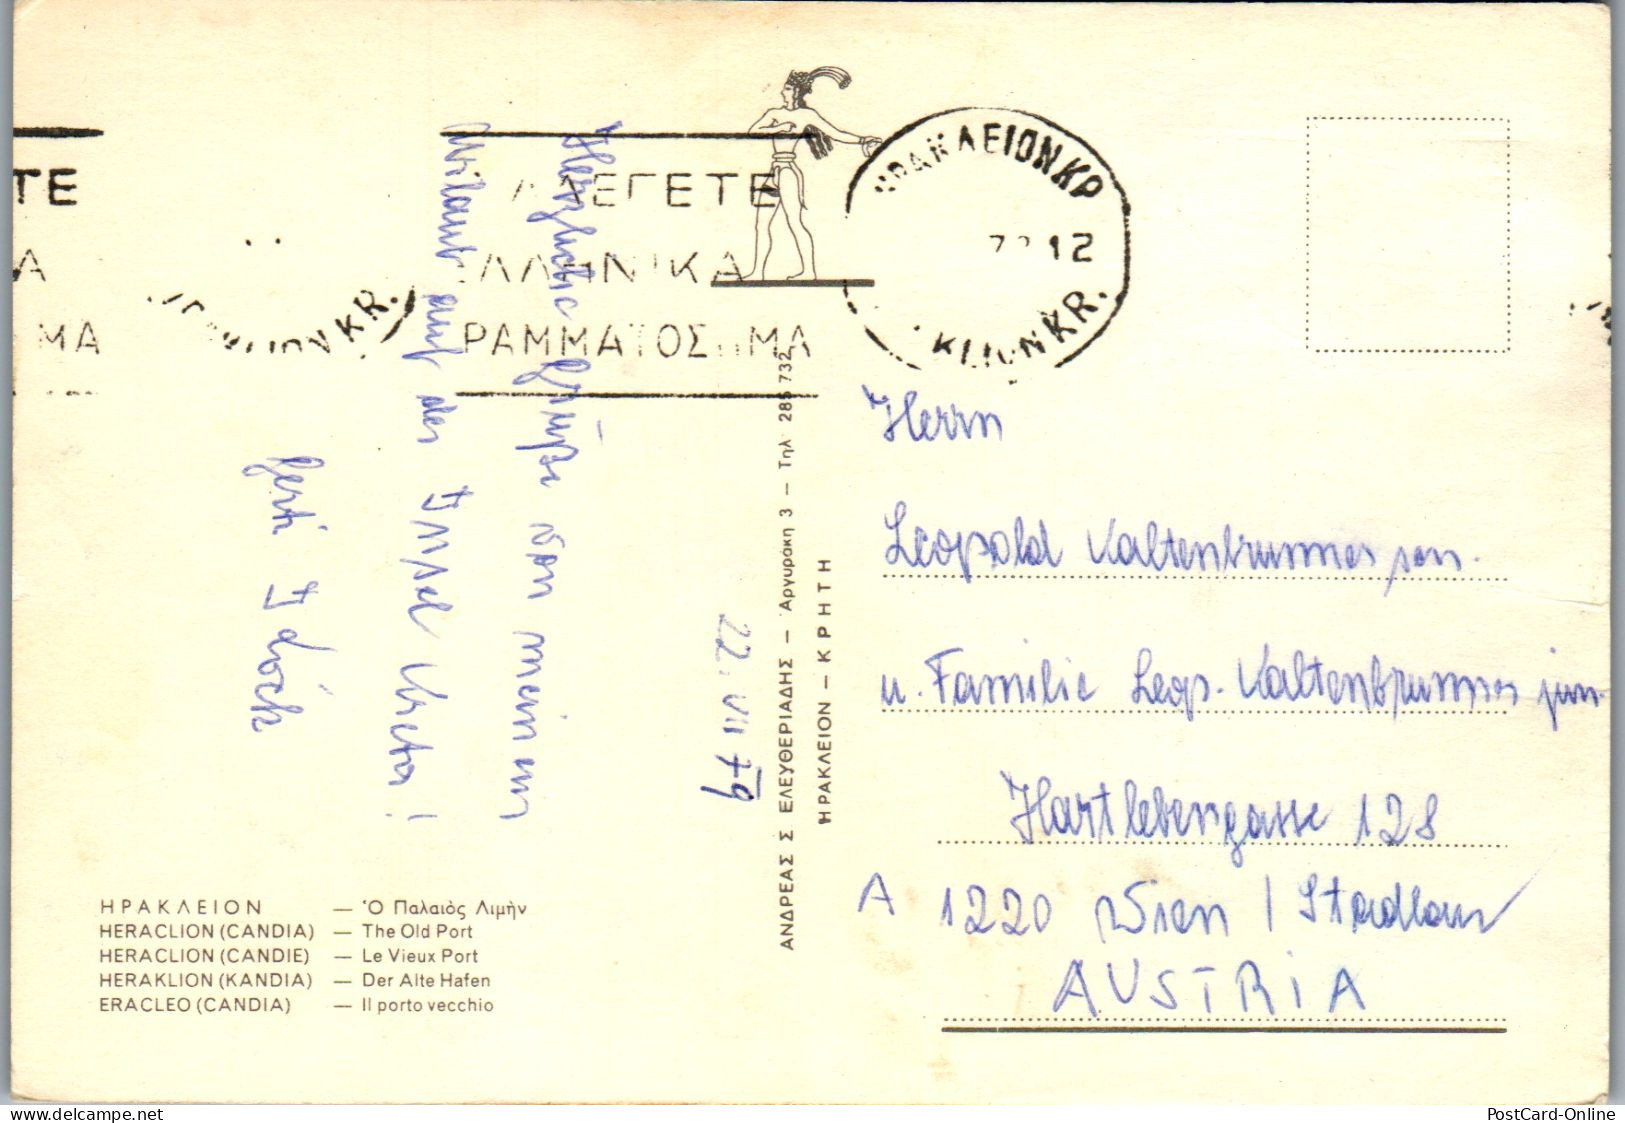 ΤΕ
Α
ΜΑ
ΛΕΓΕΤΕ
ΛΛΗΝΙΚΑ
ΡΑΜΜΑΤΟΣΗΜΑ
ΗΡΑΚΛΕΙΟΝ ΚΡ
12
KLION KR.
Herzliche Grüße von meinem
Urlaub auf der Insel Kreta!
Gerti
22. VII 79
ΑΝΔΡΕΑΣ Σ ΕΛΕΥΘΕΡΙΑΔΗΣ – Αργυράκη 3 – Τηλ 285 732
ΗΡΑΚΛΕΙΟΝ – ΚΡΗΤΗ
Herrn
Leopold Kaltenbrunner sen.
u. Familie Leop. Kaltenbrunner jun.
Hartlebengasse 128
A 1220 Wien / Stadlau
AUSTRIA
ΗΡΑΚΛΕΙΟΝ — Ὁ Παλαιὸς Λιμὴν
HERACLION (CANDIA) — The Old Port
HERACLION (CANDIE) — Le Vieux Port
HERAKLION (KANDIA) — Der Alte Hafen
ERACLEO (CANDIA) — Il porto vecchio
delcampe.net
PostCard-Online